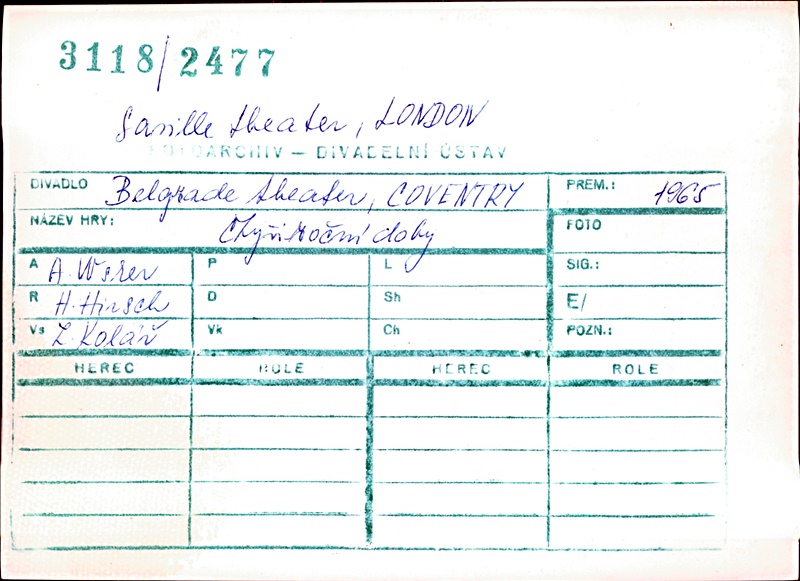 3118/2477
Saville theater, LONDON
FOTOARCHIV – DIVADELNÍ ÚSTAV
DIVADLO Belgrade theater, COVENTRY PREM.: 1965
NÁZEV HRY: Čtyři roční doby FOTO
A A. Wsker P L SIG.:
R H. Hirsch D Sh E/
Vs Z. Kolář Vk Ch POZN.:
HEREC ROLE HEREC ROLE